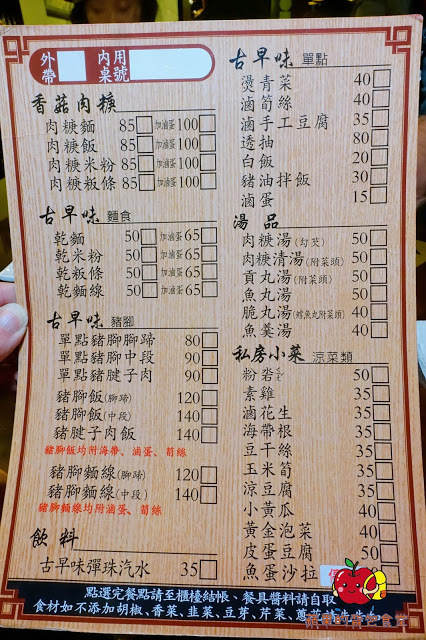 外帶 內用桌號
香菇肉焿
肉焿麵 85 加滷蛋100
肉焿飯 85 加滷蛋100
肉焿米粉 85 加滷蛋100
肉焿粄條 85 加滷蛋100
古早味 麵食
乾麵 50 加滷蛋65
乾米粉 50 加滷蛋65
乾粄條 50 加滷蛋65
乾麵線 50 加滷蛋65
古早味 豬腳
單點豬腳腳蹄 80
單點豬腳中段 90
單點豬腱子肉 90
豬腳飯(腳蹄) 120
豬腳飯(中段) 140
豬腱子肉飯 140
豬腳飯均附海帶、滷蛋、筍絲
豬腳麵線(腳蹄) 120
豬腳麵線(中段) 140
豬腳麵線均附滷蛋、筍絲
飲料
古早味彈珠汽水 35
古早味 單點
燙青菜 40
滷筍絲 40
滷手工豆腐 35
透抽 80
白飯 20
豬油拌飯 30
滷蛋 15
湯品
肉焿湯(勾芡) 50
肉焿清湯(附菜頭) 50
貢丸湯(附菜頭) 50
魚丸湯 50
脆丸湯(鱈魚丸附菜頭) 40
魚羹湯 40
私房小菜 涼菜類
粉粩 50
素雞 35
滷花生 35
海帶根 35
豆干絲 35
玉米筍 35
涼豆腐 35
小黃瓜 40
黃金泡菜 40
皮蛋豆腐 50
魚蛋沙拉
點選完餐點請至櫃檯結帳、餐具醬料請自取
食材如不添加胡椒、香菜、韭菜、豆芽、芹菜、蔥